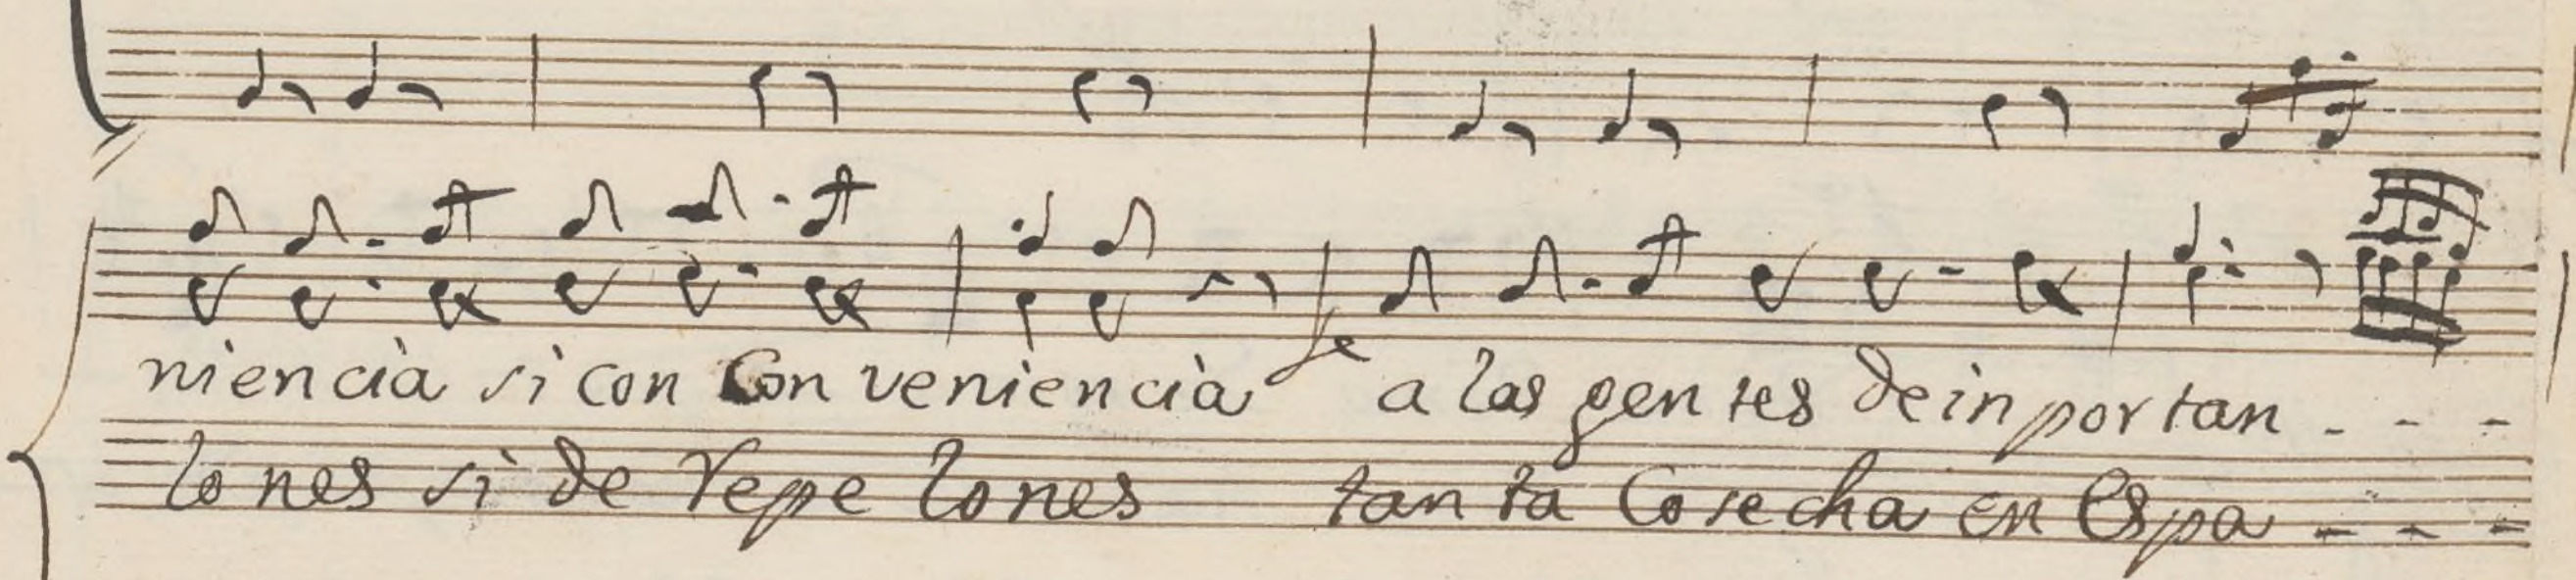 niencia si con Con veniencia se a las gen tes de in por tan - - -
lo nes si de Repe lo nes tan ta Co se cha en Espa - - -